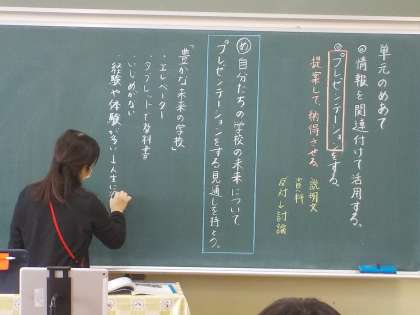 単元のめあて
◎情報を関連付けて活用する。
◎プレゼンテーションをする。
提案して、納得させる
説明文
資料
反対し討論
め 自分たちの学校の未来について
プレゼンテーションをする見通しを持とう。
「豊かな未来の学校」
・エレベーター
・タブレットで教科書
・いじめがない
・経験や体験が多い→人生に